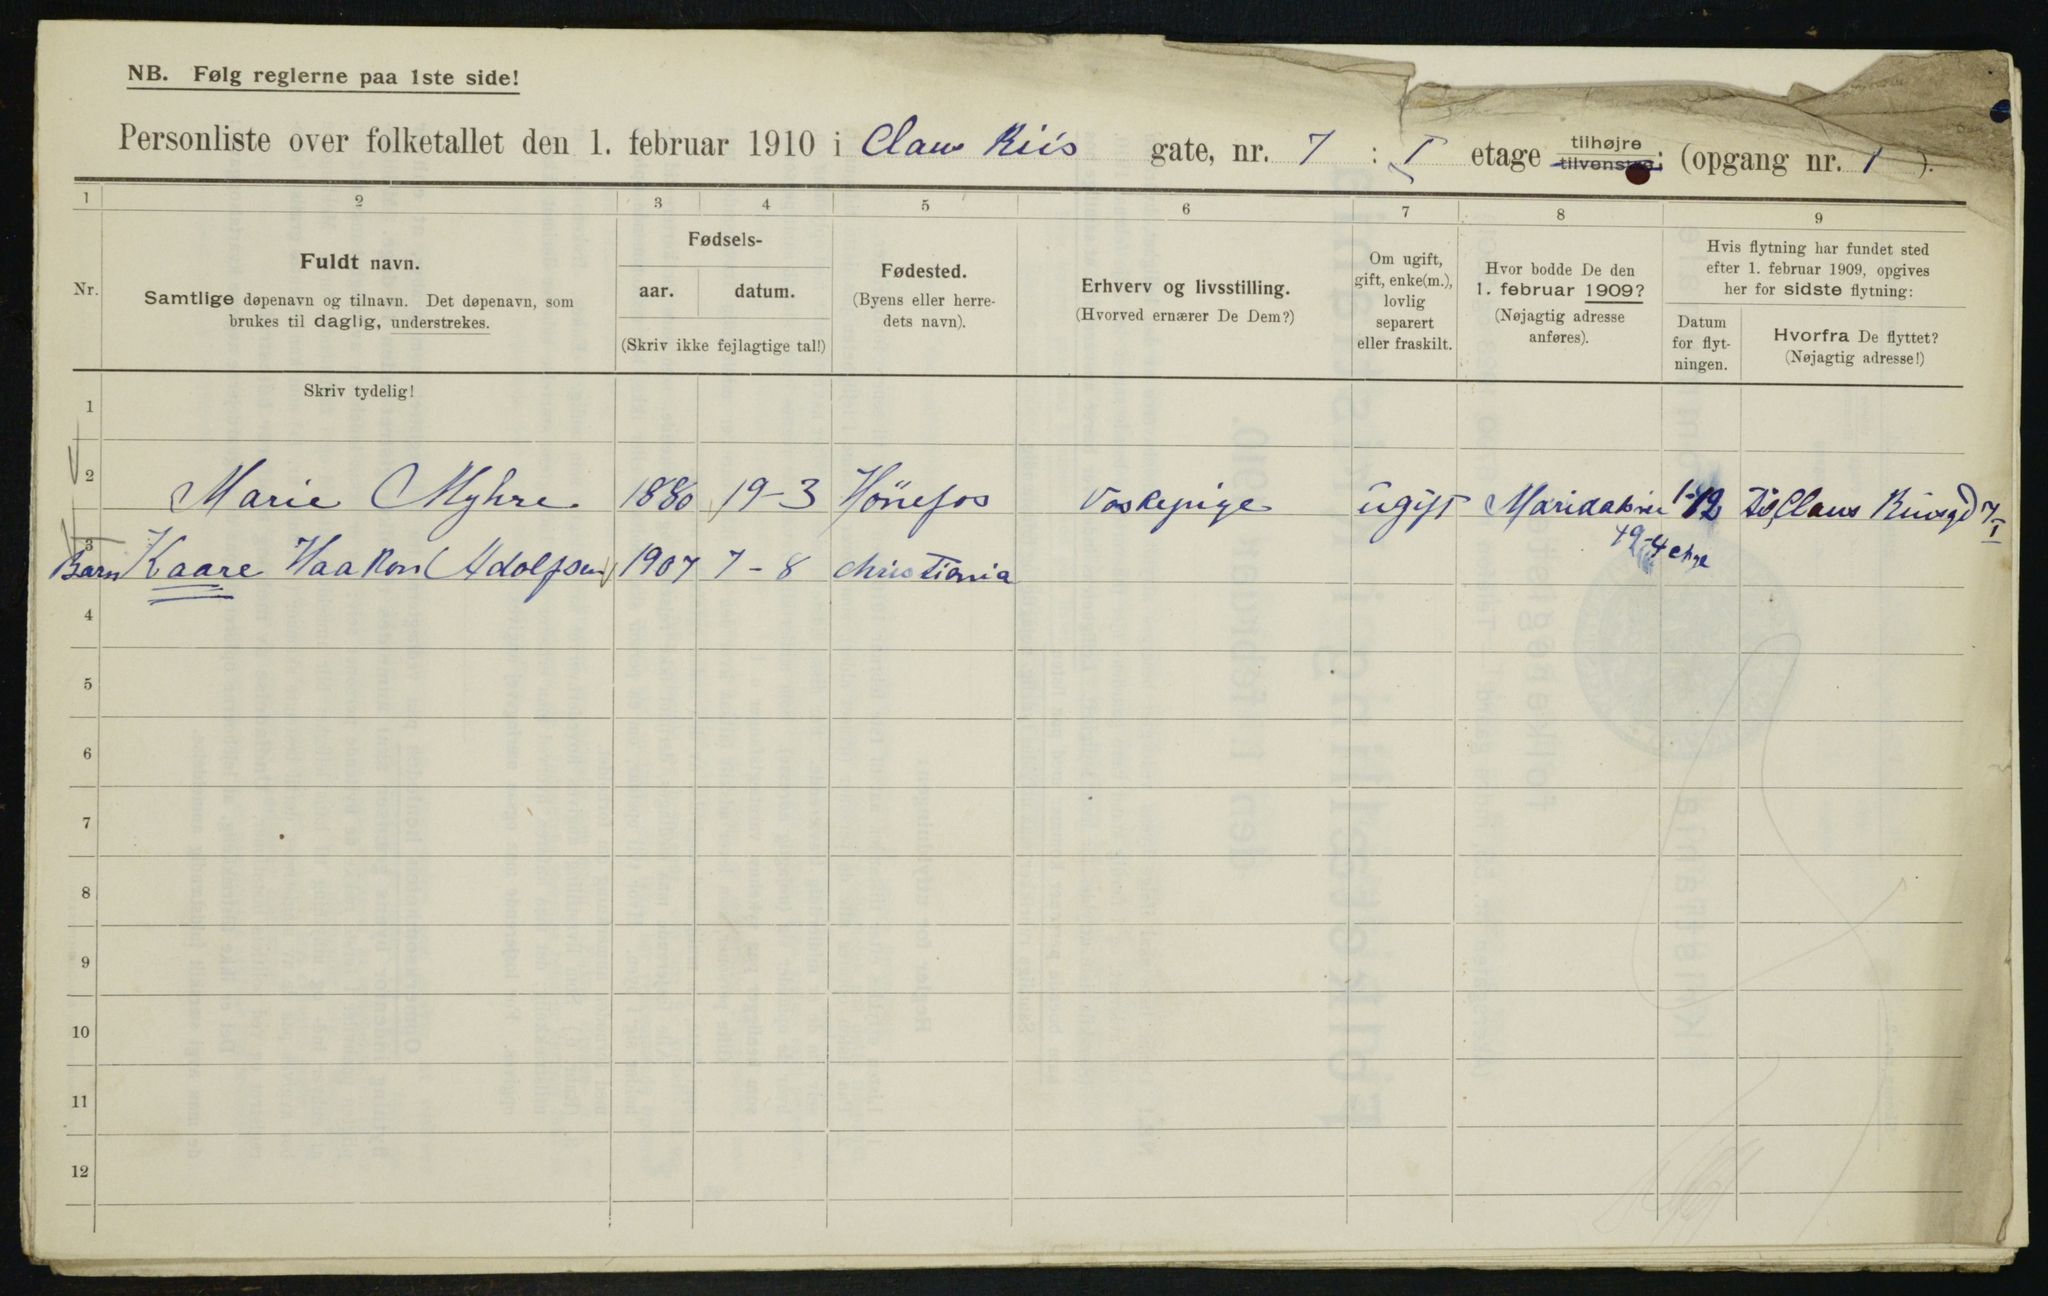 NB. Følg reglerne paa 1ste side!
Personliste over folketallet den 1. februar 1910 i Claus Riis gate, nr. 7 : I etage tilhøjre tilvenstre; (opgang nr. 1 ).
1 2 3 4 5 6 7 8 9
Nr.
Fuldt navn.
Samtlige døpenavn og tilnavn. Det døpenavn, som
brukes til daglig, understrekes.
Fødsels-
aar. datum.
(Skriv ikke fejlagtige tal!)
Fødested.
(Byens eller herre-
dets navn).
Erhverv og livsstilling.
(Hvorved ernærer De Dem?)
Om ugift,
gift, enke(m.),
lovlig
separert
eller fraskilt.
Hvor bodde De den
1. februar 1909?
(Nøjagtig adresse
anføres).
Hvis flytning har fundet sted
efter 1. februar 1909, opgives
her for sidste flytning:
Datum
for flyt-
ningen.
Hvorfra De flyttet?
(Nøjagtig adresse!)
Skriv tydelig!
1
2 Marie Myhre 1880 19-3 Hönefos Vaskepige ugift 1-12 Claus Riisgd 7/I
49-4 etge
3 Barn Kaare Haakon (Adolfsen) 1907 7-8 christiania
4
5
6
7
8
9
10
11
12